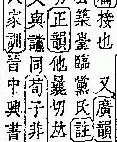 接也 又廣韻
公築臺臨黨氏註
正韻他曩切𠀤
又與讜同荀子非
家訓晉中興書